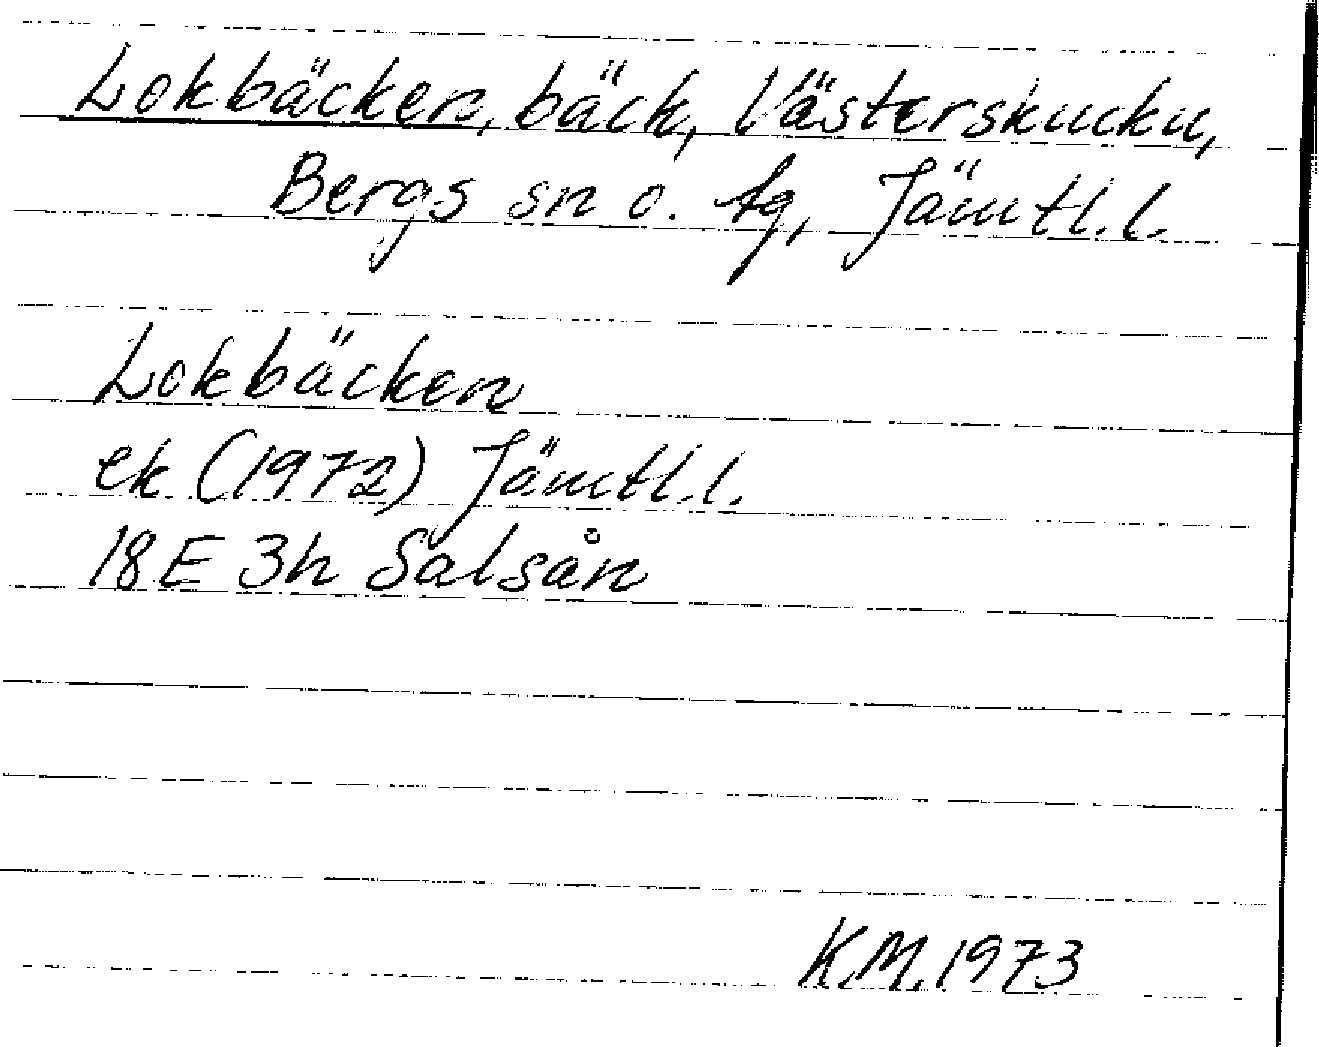 Lokbäcken, bäck, Västerskucku,
Bergs sn o. tg, Jämtl. l.
Lokbäcken
ek (1972) Jämtl. l.
18 E 3h Salsån
K.M. 1973